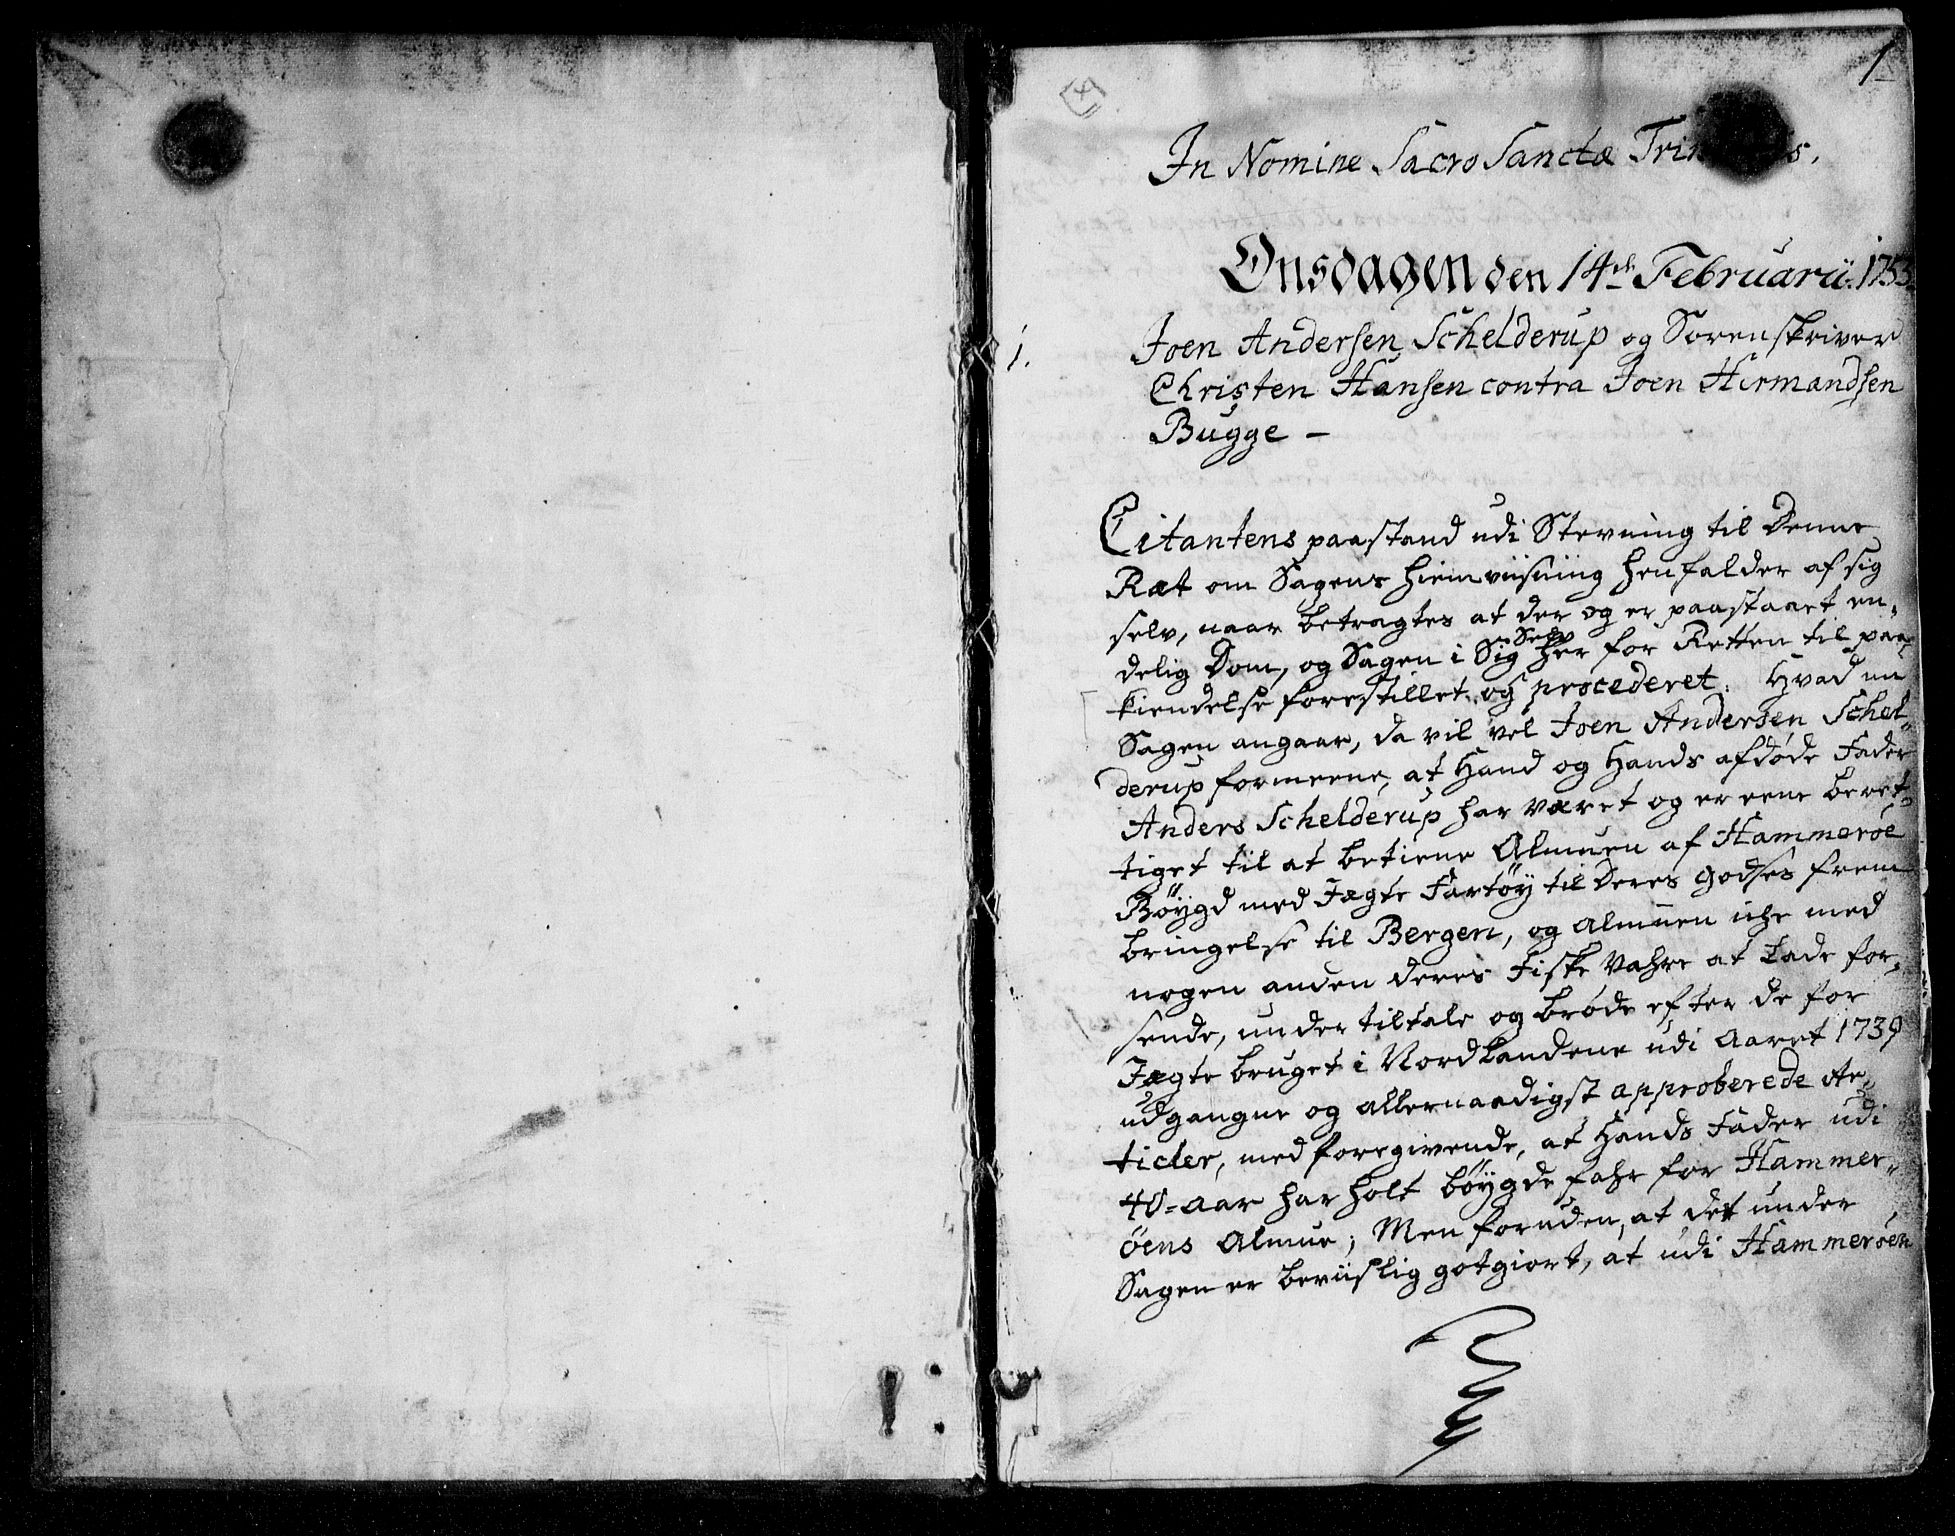 1
In Nomine SacroSanctæ
Onsdagen den 14de Februarii 1753.
1. Joen Andersen Schelderup og Sorenskriver
Christen Hansen contra Joen Hermandsen
Bugge –
Citantens paastand udi Stevning til Denne
Ræt om Sagens hiemviisning henfalder af sig
selv, naar betragtes at der og er paastaaet en„
delig Dom, og Sagen i Sig Selv her for Retten til paa„
kiendelse forestillet og procederet. Hvad nu
Sagen angaar, da vil vel Joen Andersen Schel„
derup formeene, at Hand og Hands afdøde Fader
Anders Schelderup har været og er eene beret„
tiget til at betiene Almuen af Hammerøe
Böygd med Jægte Fartöy til Deres Godses frem
bringelse til Bergen, og Almuen iche med
nogen anden deres Fiske Vahre at Lade for„
sende, under tiltale og bröde efter de for
Jægte bruget i Nordlandene udi Aaret 1739
udgangne og allernaadigst approberede Ar„
ticler, med foregivende, at Hands Fader udi
40= aar har holt böygde fahr for Hammer„
öens Almue; Men foruden, at det under
Sagen er beviislig gotgiort, at udi Hammeröen